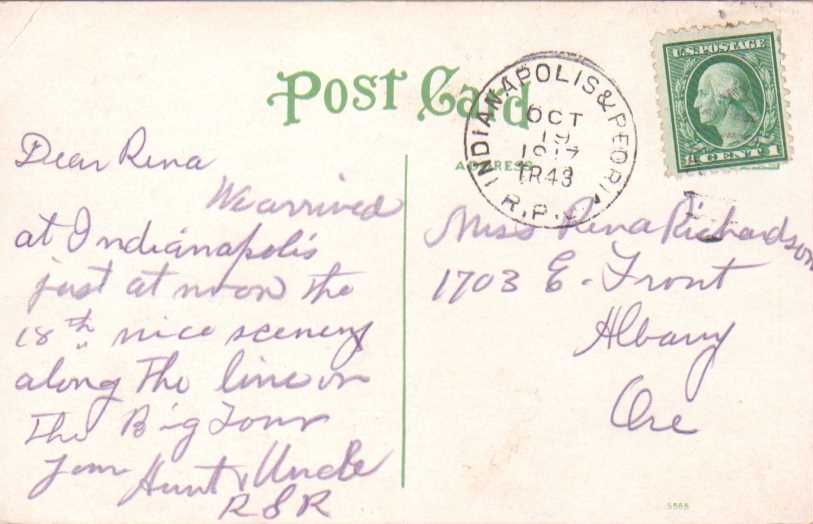 Post Card
ADDRESS
INDIANAPOLIS & PEORIA
OCT
19
1917
TR43
R.P.O.
U.S. POSTAGE
1 CENT 1
Dear Rena
We arrived
at Indianapolis
just at noon the
18th nice scenery
along the line on
the Big Four
your Aunt & Uncle
R & R
Miss Rena Richardson
1703 E. Front
Albany
Ore
5565